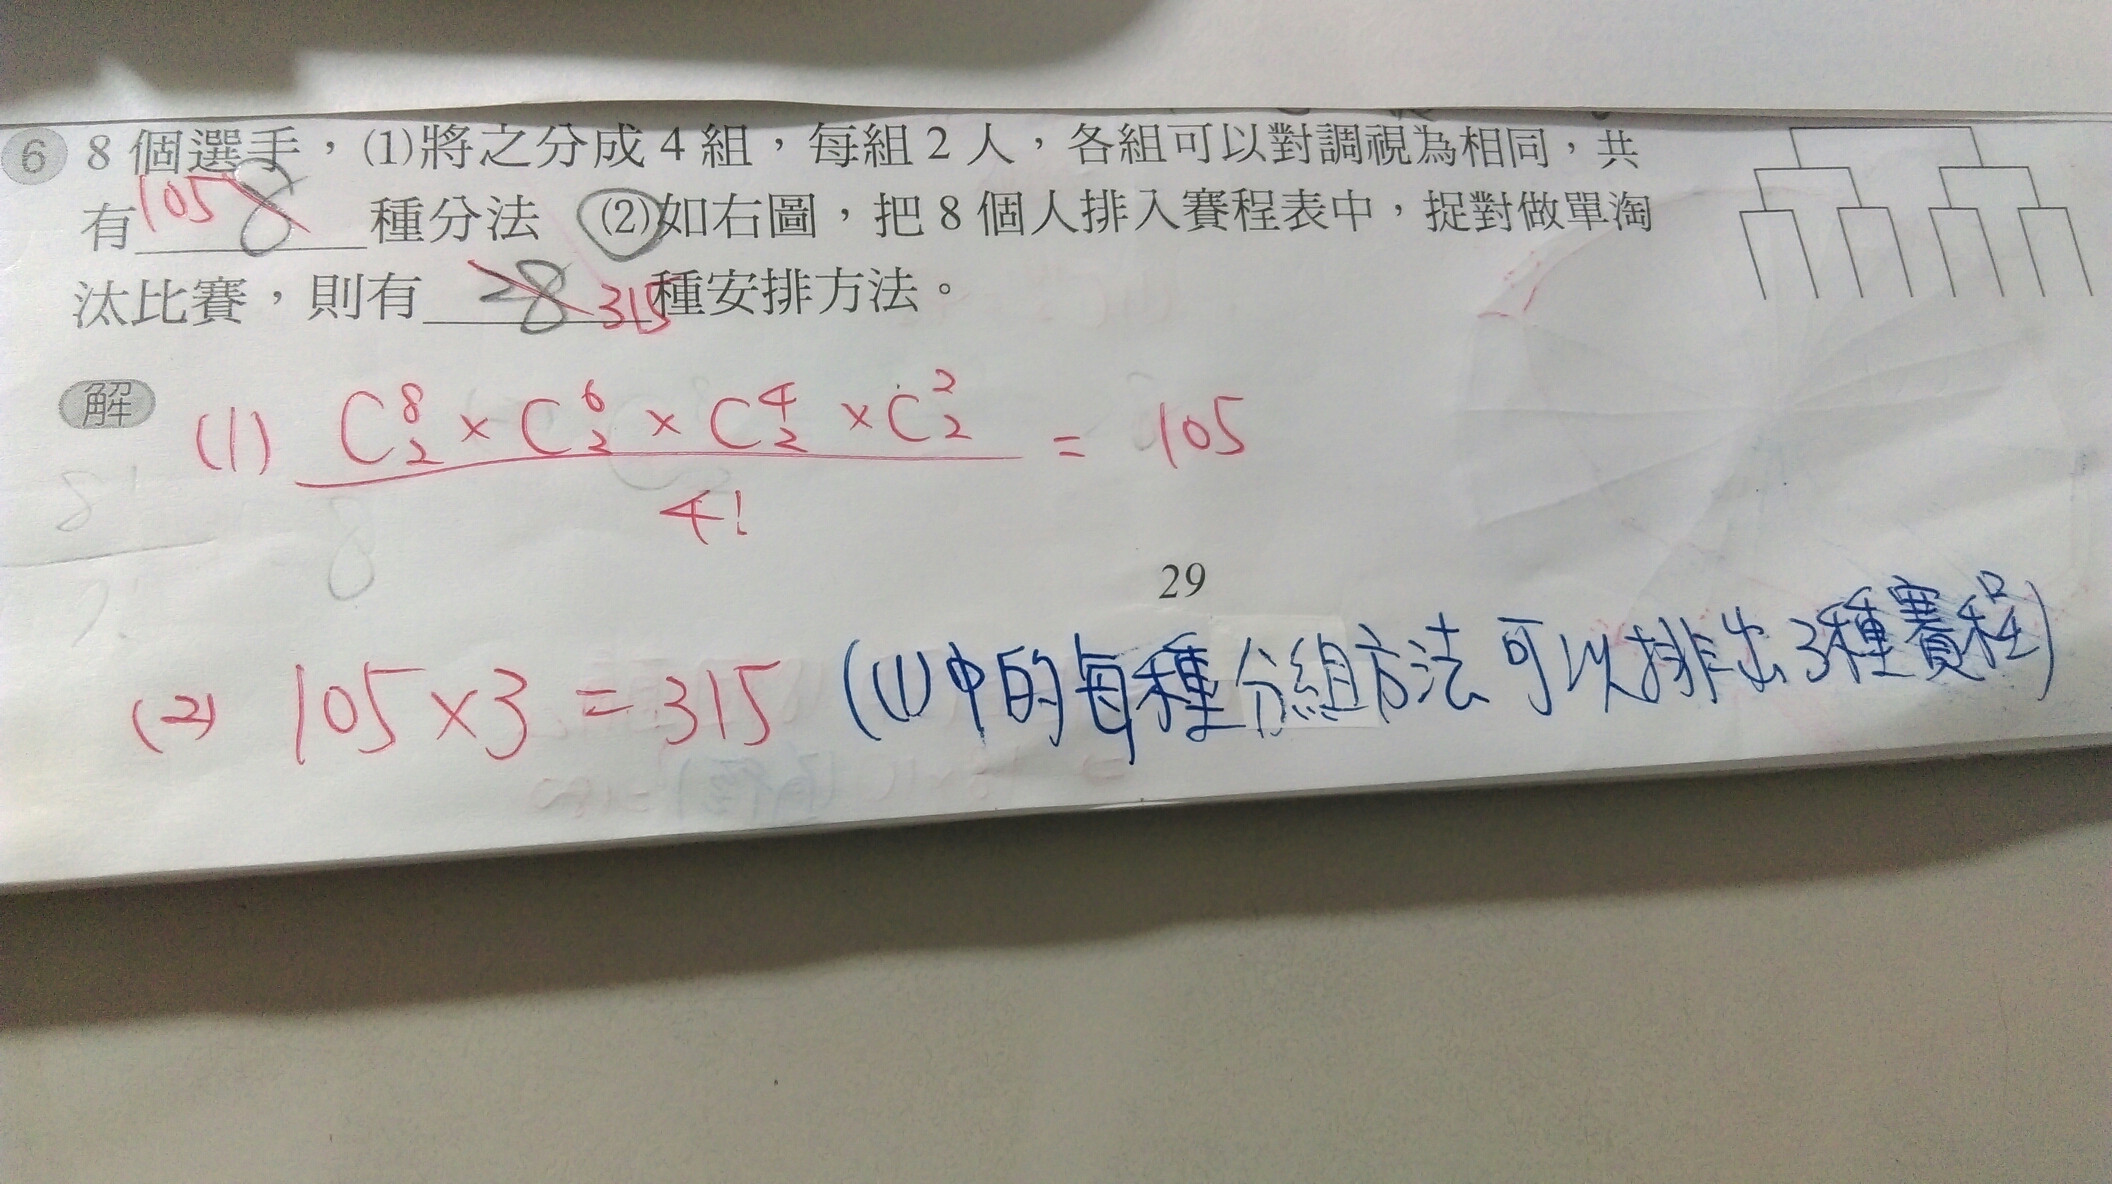 6 8 個選手，(1)將之分成 4 組，每組 2 人，各組可以對調視為相同，共
有 105 8 種分法 (2)如右圖，把 8 個人排入賽程表中，捉對做單淘
汰比賽，則有 28 315 種安排方法。
解 (1) C⁸₂ × C⁶₂ × C⁴₂ × C²₂ = 105
4!
29
(2) 105 × 3 = 315 ((1)中的每種分組方法可以排出3種賽程)